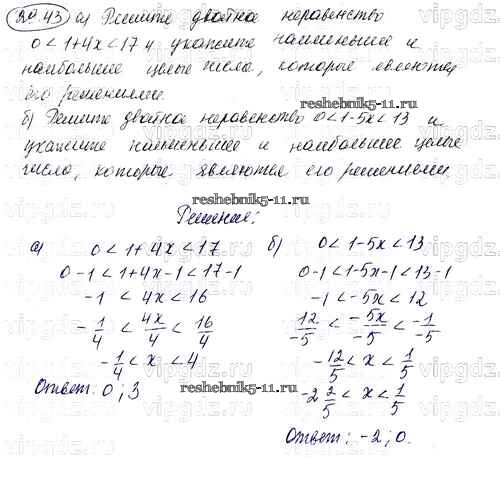 20.43 а) Решите двойное неравенство
0 < 1 + 4x < 17 и укажите наименьшее и
наибольшее целые числа, которые являются
его решениями.
reshebnik5-11.ru
б) Решите двойное неравенство 0 < 1 - 5x < 13 и
укажите наименьшее и наибольшее целые
числа, которые являются его решениями.
reshebnik5-11.ru
Решение:
а) 0 < 1 + 4x < 17
0 - 1 < 1 + 4x - 1 < 17 - 1
-1 < 4x < 16
-1/4 < 4x/4 < 16/4
-1/4 < x < 4
Ответ: 0; 3
reshebnik5-11.ru
б) 0 < 1 - 5x < 13
0 - 1 < 1 - 5x - 1 < 13 - 1
-1 < -5x < 12
12/-5 < -5x/-5 < -1/-5
-12/5 < x < 1/5
-2 2/5 < x < 1/5
Ответ: -2; 0.